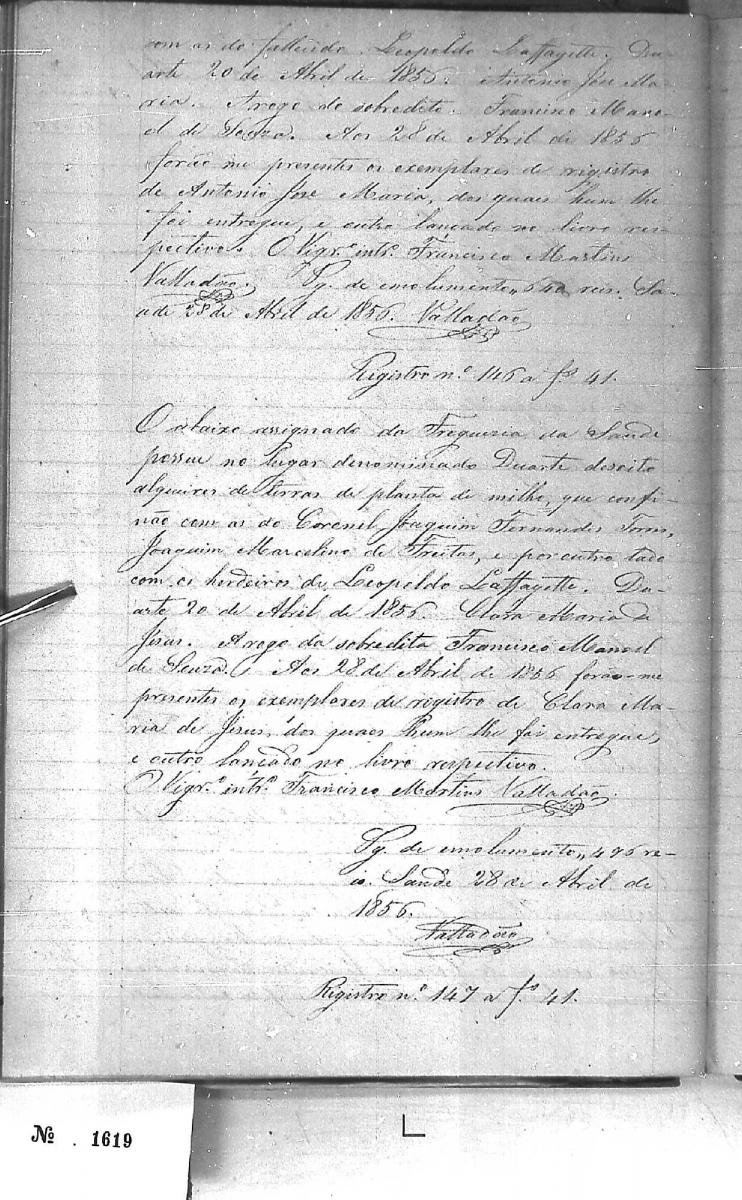 com as do fallecido Leopoldo Laffayette. Du-
arte 20 de Abril de 1856. Antonio José Ma-
ria. A rogo do sobredito. Francisco Mano-
el de Souza. Aos 28 de Abril de 1856
forão me presentes os exemplares de registro
de Antonio José Maria, dos quaes hum lhe
foi entregue, e outro lançado no livro res-
pectivo. O Vigr.º intr.º Francisco Martins
Valladão. Pg. de emolumento,, 640 reis. Sa-
ude 28 de Abril de 1856. Valladão
Registro n.º 146 a fs 41.
O abaixo assignado da Freguezia da Saude
possue no lugar denominado Duarte desoito
alqueires de terras de planta de milho, que confi-
não com as do Coronel Joaquim Fernandes Torres,
Joaquim Marcelino de Freitas, e por outro lado
com os herdeiros de Leopoldo Laffayette. Du-
arte 20 de Abril de 1856. Clara Maria de
Jesus. A rogo da sobredita Francisco Manoel
de Souza. Aos 28 de Abril de 1856 forão-me
presentes os exemplares de registro de Clara Ma-
ria de Jesus, dos quaes hum lhe foi entregue,
e outro lançado no livro respectivo.
O Vigr.º intr.º Francisco Martins Valladão.
Pg. de emolumento,, 496 re-
is. Saude 28 de Abril de
1856.
Valladão
Registro n.º 147 a fs 41.
Nº . 1619